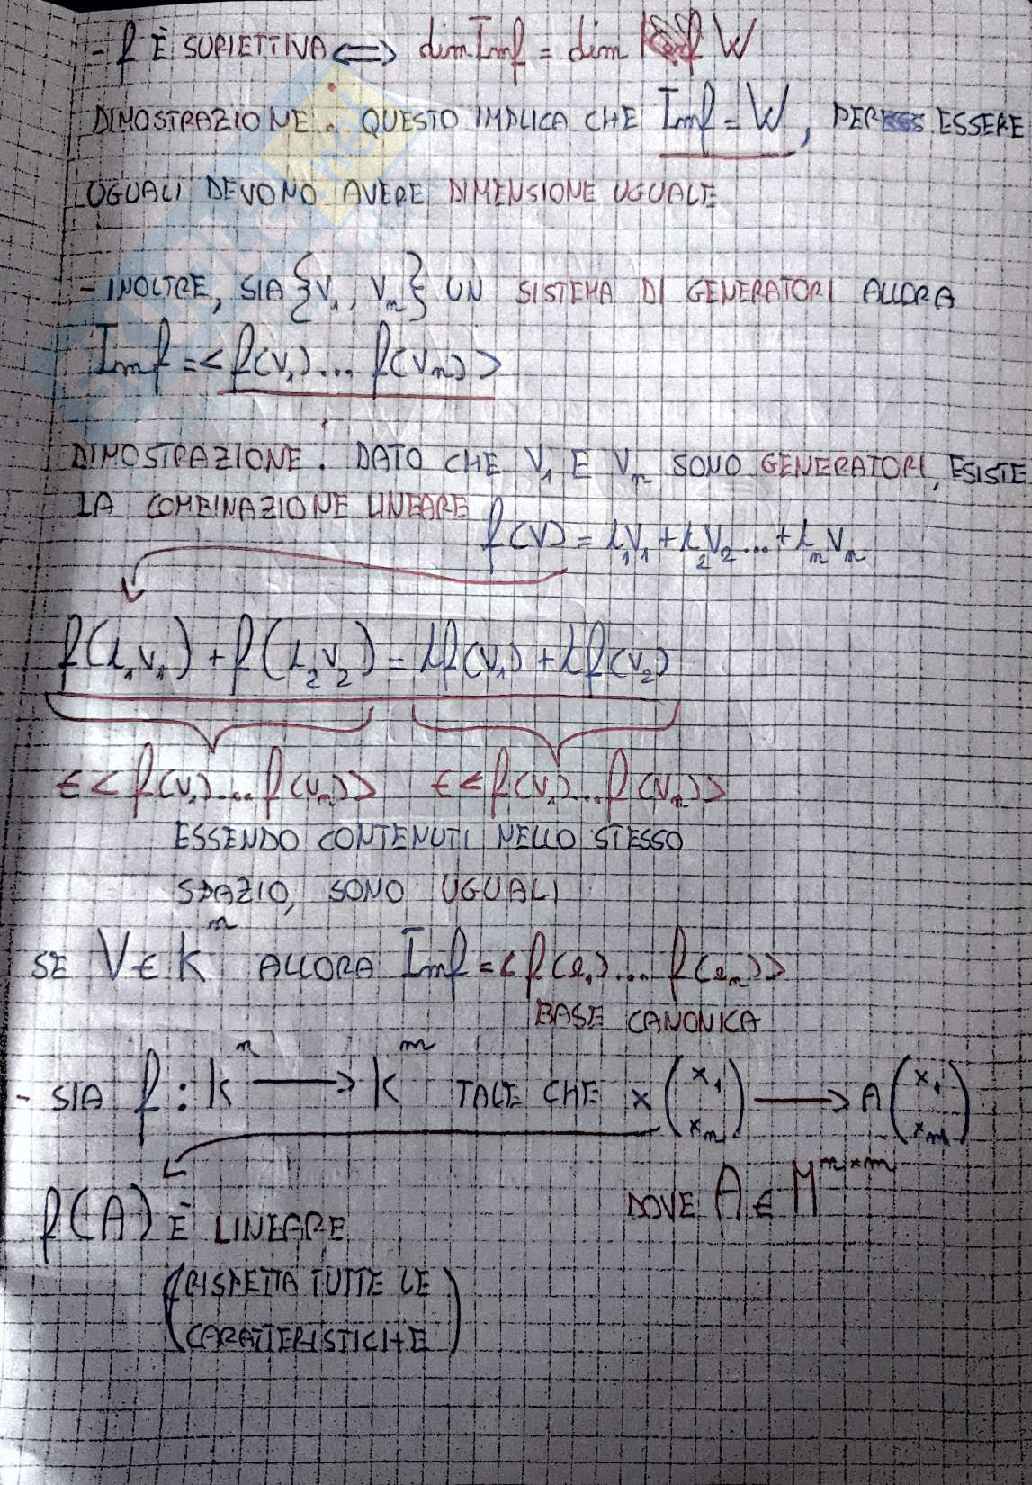 - f È SURIETTIVA ⟺ dim Imf = dim W
DIMOSTRAZIONE : QUESTO IMPLICA CHE Imf = W, PER ESSERE
UGUALI DEVONO AVERE DIMENSIONE UGUALE
- INOLTRE, SIA {V₁, Vₙ} UN SISTEMA DI GENERATORI ALLORA
Imf = < f(V₁)... f(Vₙ) >
DIMOSTRAZIONE : DATO CHE V₁ E Vₙ SONO GENERATORI, ESISTE
LA COMBINAZIONE LINEARE
f(V) = λ₁V₁ + λ₂V₂ ... + λₙVₙ
f(λ₁V₁) + f(λ₂V₂) = λf(V₁) + λf(V₂)
∈ < f(V₁)... f(Vₙ) > ∈ < f(V₁)... f(Vₙ) >
ESSENDO CONTENUTI NELLO STESSO
SPAZIO, SONO UGUALI
SE V ∈ Kⁿ ALLORA Imf = < f(e₁).... f(eₙ) >
BASE CANONICA
- SIA f : Kⁿ ⟶ Kᵐ TALE CHE x (x₁ xₙ) ⟶ A (x₁ xₙ)
f(A) È LINEARE DOVE A ∈ Mᵐˣⁿ
(RISPETTA TUTTE LE
CARATTERISTICHE)